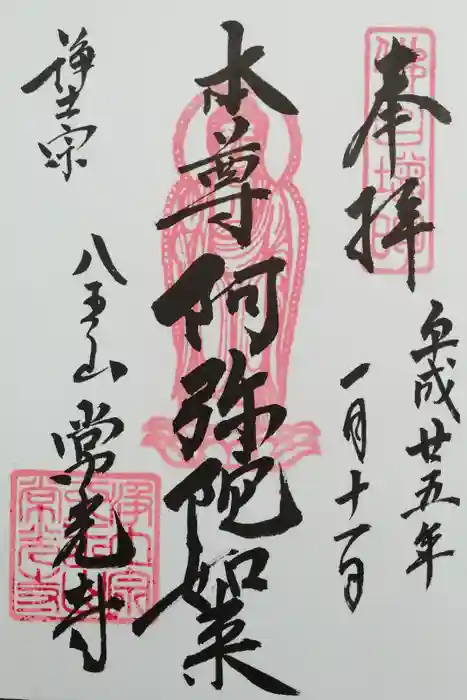 奉拝
平成廿五年
一月十一日
本尊阿弥陀如来
浄土宗
八王山
常光寺